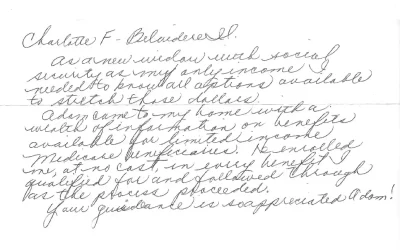 Charlotte F - Belvidere Il.
As a new widow with social
security as my only income I
needed to know all options available
to stretch those dollars.
Adam came to my home with a
wealth of information on benefits
available for limited income
Medicare beneficiaries. He enrolled
me, at no cost, in every benefit I
qualified for and followed through
as the process proceeded.
Your guidance is so appreciated Adam!